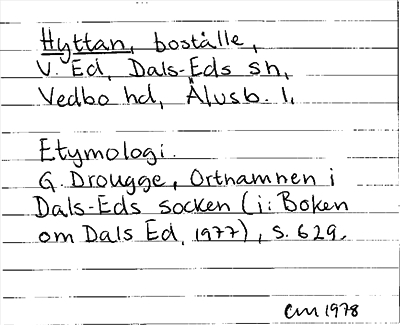 Hyttan, boställe,
V. Ed, Dals-Eds sn,
Vedbo hd, Älvsb. l.
Etymologi.
G. Drougge, Ortnamnen i
Dals-Eds socken (i: Boken
om Dals Ed, 1977), s. 629.
CM 1978